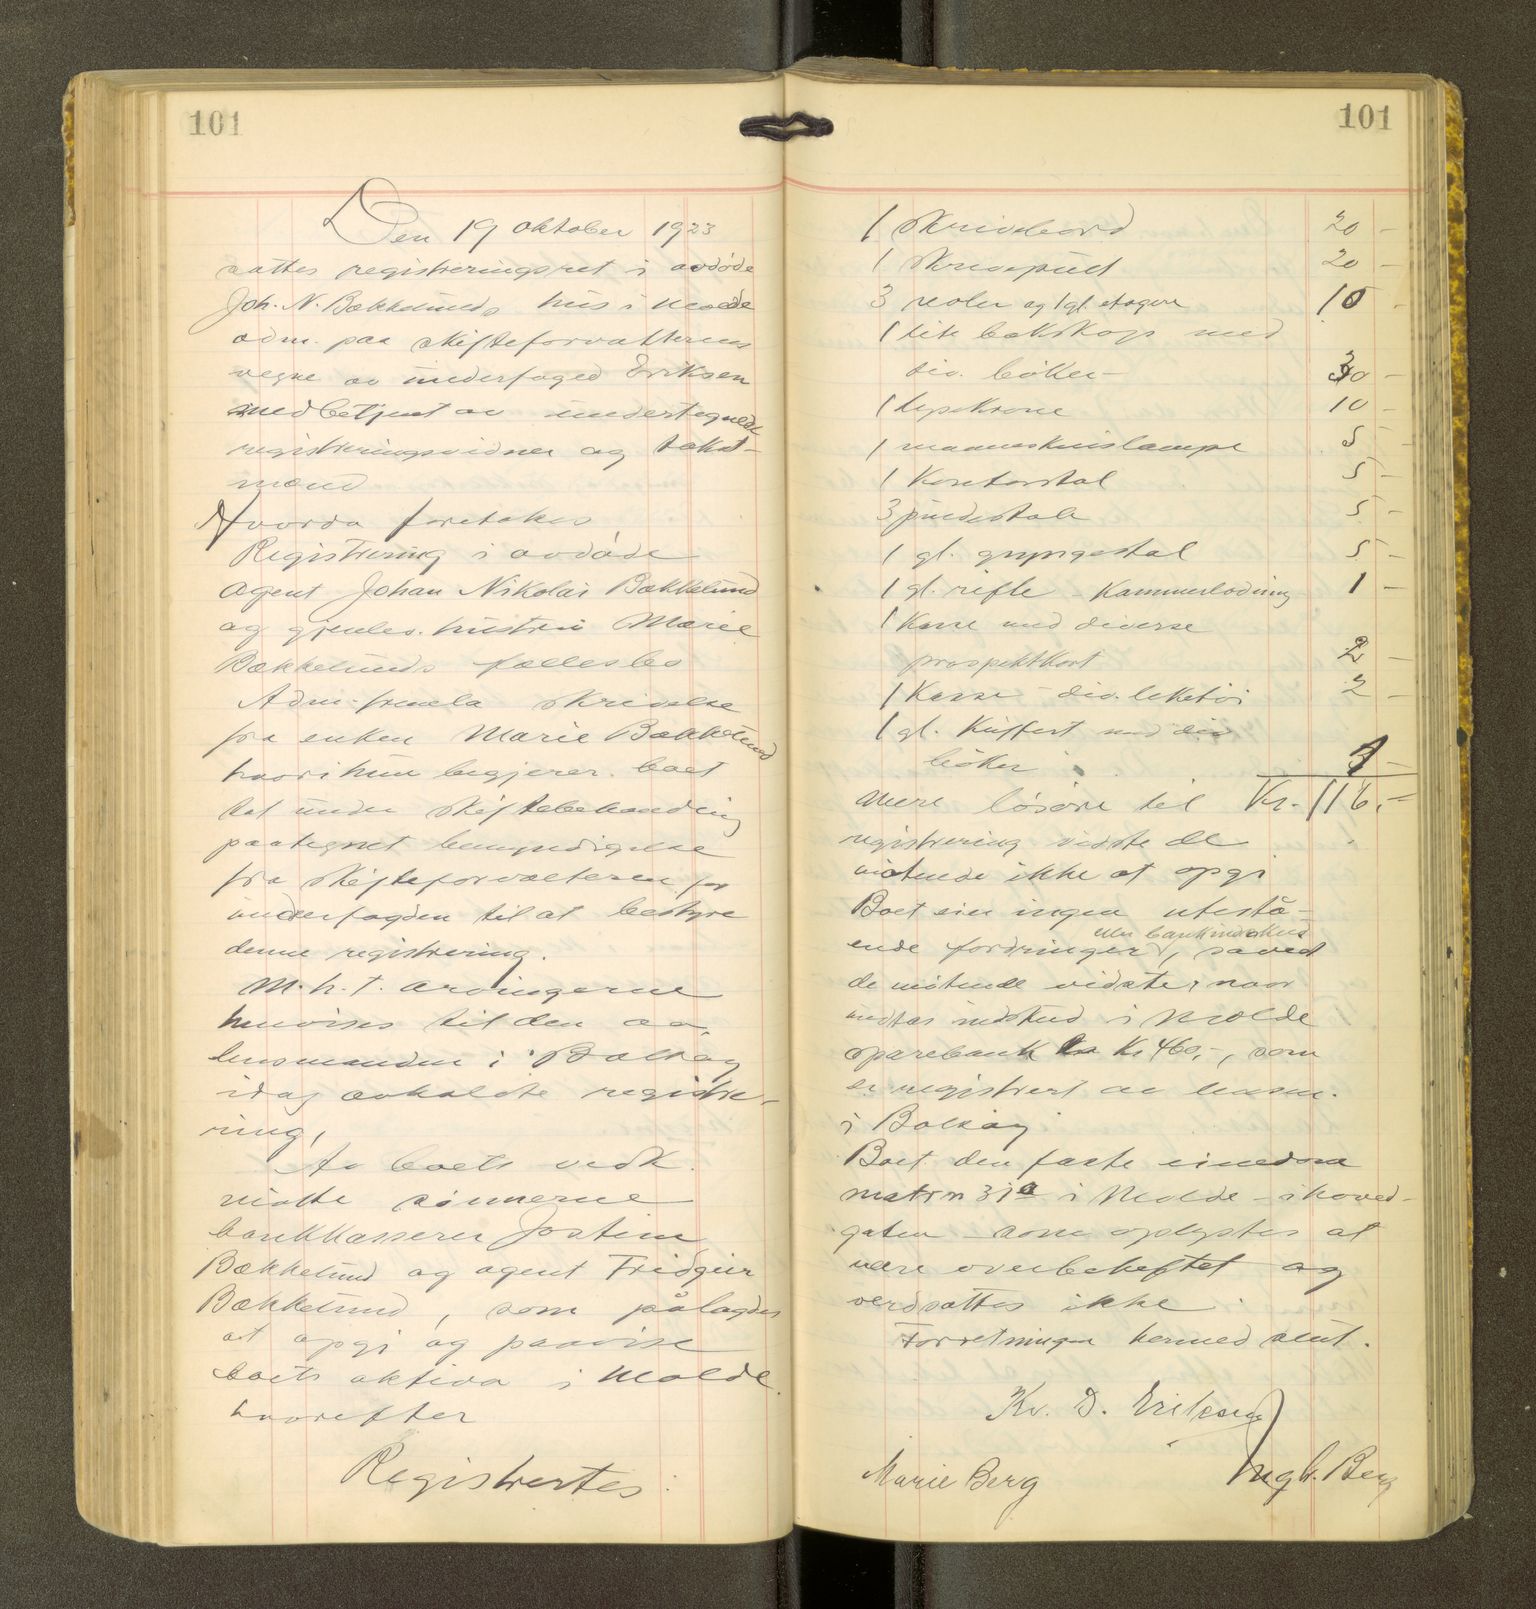 101
Den 19 oktober 1923
sattes registreringsret i avdøde
Joh. N. Bækkelunds hus i Molde
adm. paa skifteforvalterens
vegne av underfoged Eriksen
medbetjent av undertegnede
registreringsvidner og takst-
mænd
Hvorda foretokes
Registrering i avdøde
agent Johan Nikolai Bækkelund
og gjenlev. hustru Marie
Bækkelunds fællesbo
Adm. fremla skrivelse
fra enken Marie Bækkelund
hvori hun begjærer boet
tat under skiftebehandling
paategnet bemyndigelse
fra skifteforvalteren for
underfogden til at bestyre
denne registrering.
M.h.t. arvingerne
henvises til den av
lensmanden i Bolsøy
idag avholdte registre-
ring,
Av boets vedk.
møtte sønnerne
bankkasserer Jostein
Bækkelund og agent Fridgeir
Bækkelund, som pålagdes
at opgi og paavise
boets aktiva i Molde.
hvorefter
Registrertes
101
1 Skrivebord 20 -
1 Skrivepult 20 -
3 reoler og 1 gl. etagere 10 -
1 lite bokskap med
div. bøker - 30 -
1 lysekrone 10 -
1 lampe 5 -
1 Kontorstol 5 -
3 pindestole 5 -
1 gl. gyngestol 5 -
1 gl. rifle - Kammerladning 1 -
1 Kasse med diverse
prospektkort 2 -
1 Kasse - div. leketøi 2 -
1 gl. Kuffert med div
bøker 1 -
Mere løsøre til Kr. 116.-
registrering vidste de
møtende ikke at opgi
Boet eier ingen utestå-
eller bankindskud
ende fordringer, saavidt
de møtende vidste, naar
undtas indskud i Molde
sparebank Kr 460,-, som
er registrert av lensm.
i Bolsøy
Boet den faste eiendom
matr n 31a i Molde - i hoved-
gaten - som oplystes at
være overbeheftet og
verdsattes ikke.
Forretningen hermed slut.
Kr. D. Eriksen
Marie Berg Ingb. Berg